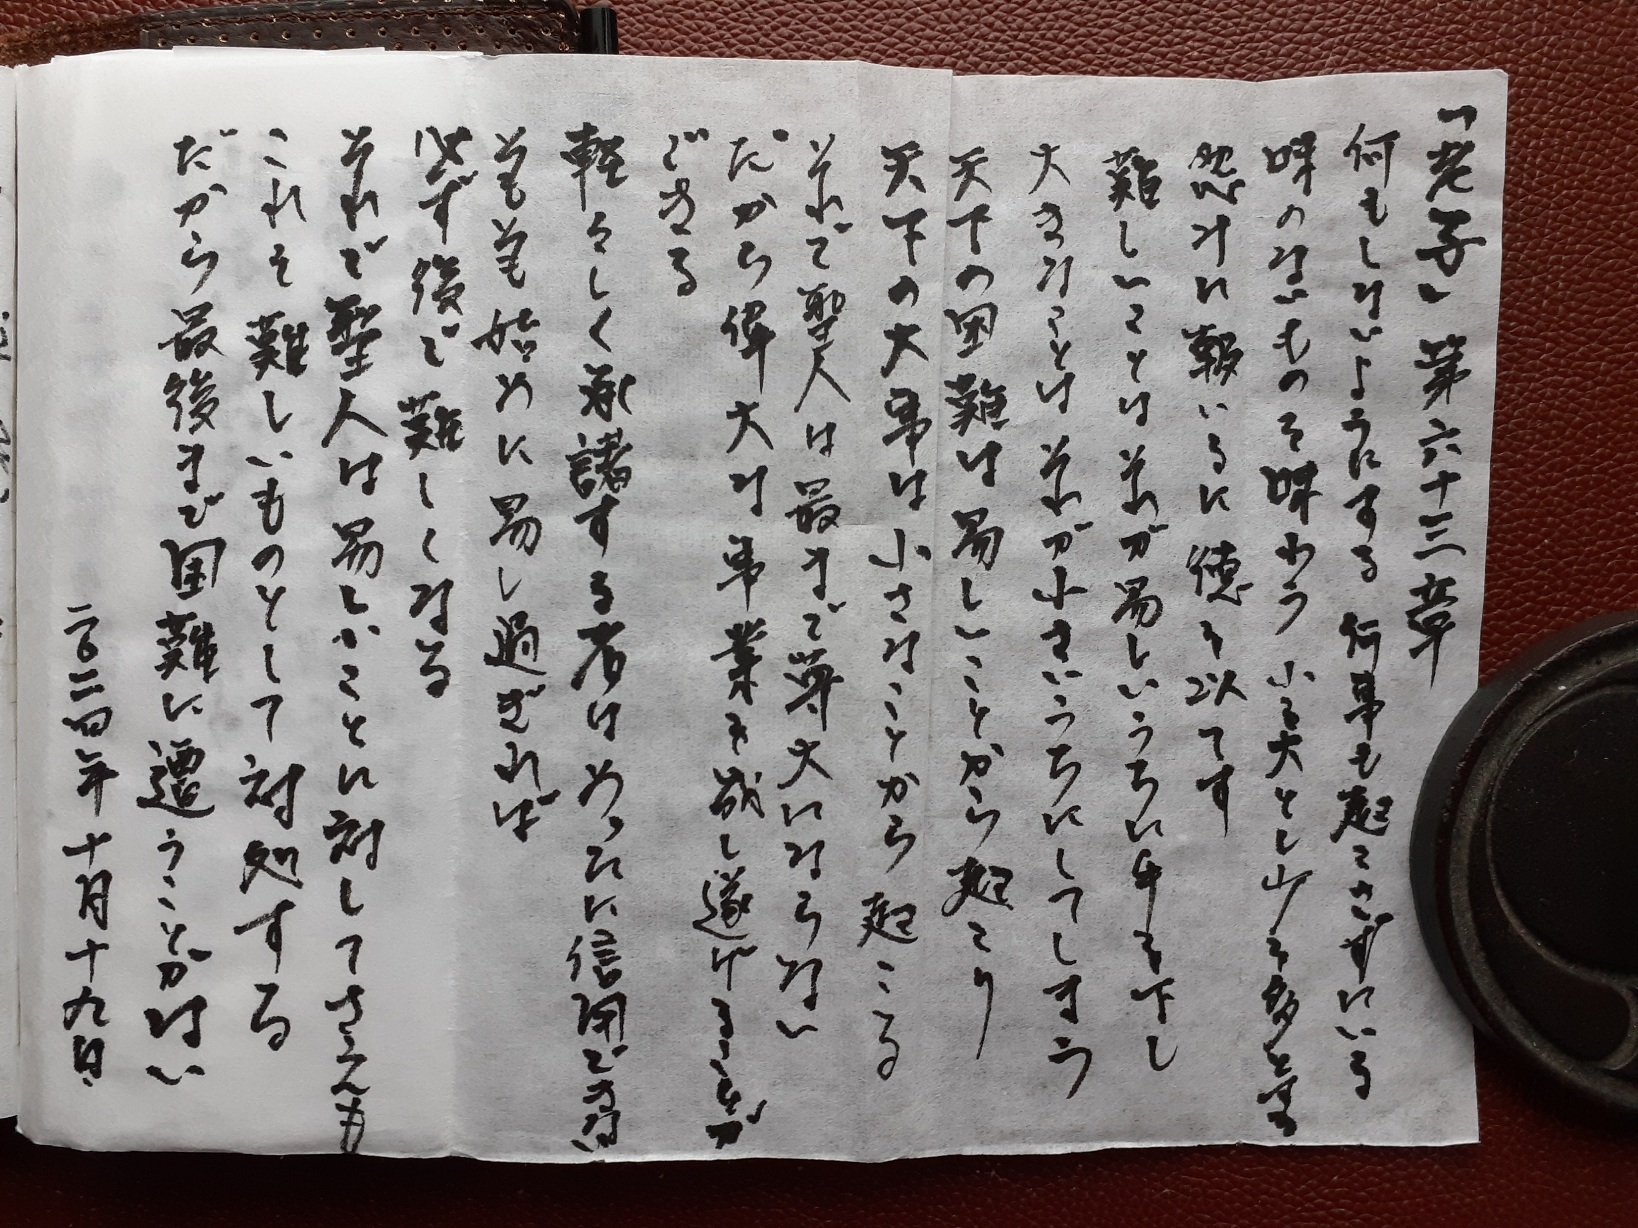 『老子』第六十三章
何もしないようにする 何事も起こさずにいる
味のないものを味わう 小を大とし少を多とする
怨みに報いるに徳を以てす
難しいことはそれが易しいうちに手を下し
大きなことはそれが小さいうちにしてしまう
天下の困難は易しいことから起こり
天下の大事は小さなことから起こる
それで聖人は最まで尊大にならない
だから偉大な事業を成し遂げることが
できる
軽々しく承諾する者はめったに信用できない
そもそも始めに易し過ぎれば
必ず後で難しくなる
それで聖人は易しいことに対してさえも
これを難しいものとして対処する
だから最後まで困難に遭うことがない
二〇二四年十月十九日